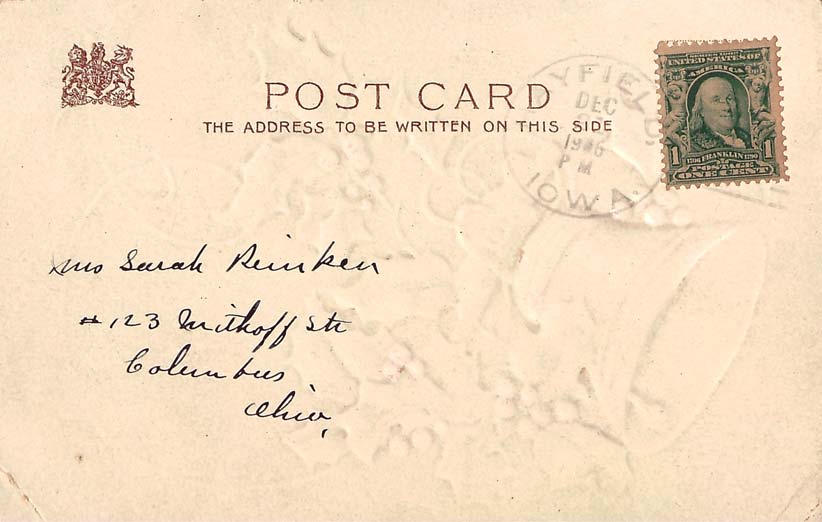 POST CARD
THE ADDRESS TO BE WRITTEN ON THIS SIDE
YFIELD,
DEC
1906
P M
IOWA.
SERIES 1902
UNITED STATES OF
AMERICA
1 1706 FRANKLIN 1790 1
POSTAGE
ONE CENT
Mrs Sarah Reinken
#123 Mithoff Str
Columbus
Ohio,